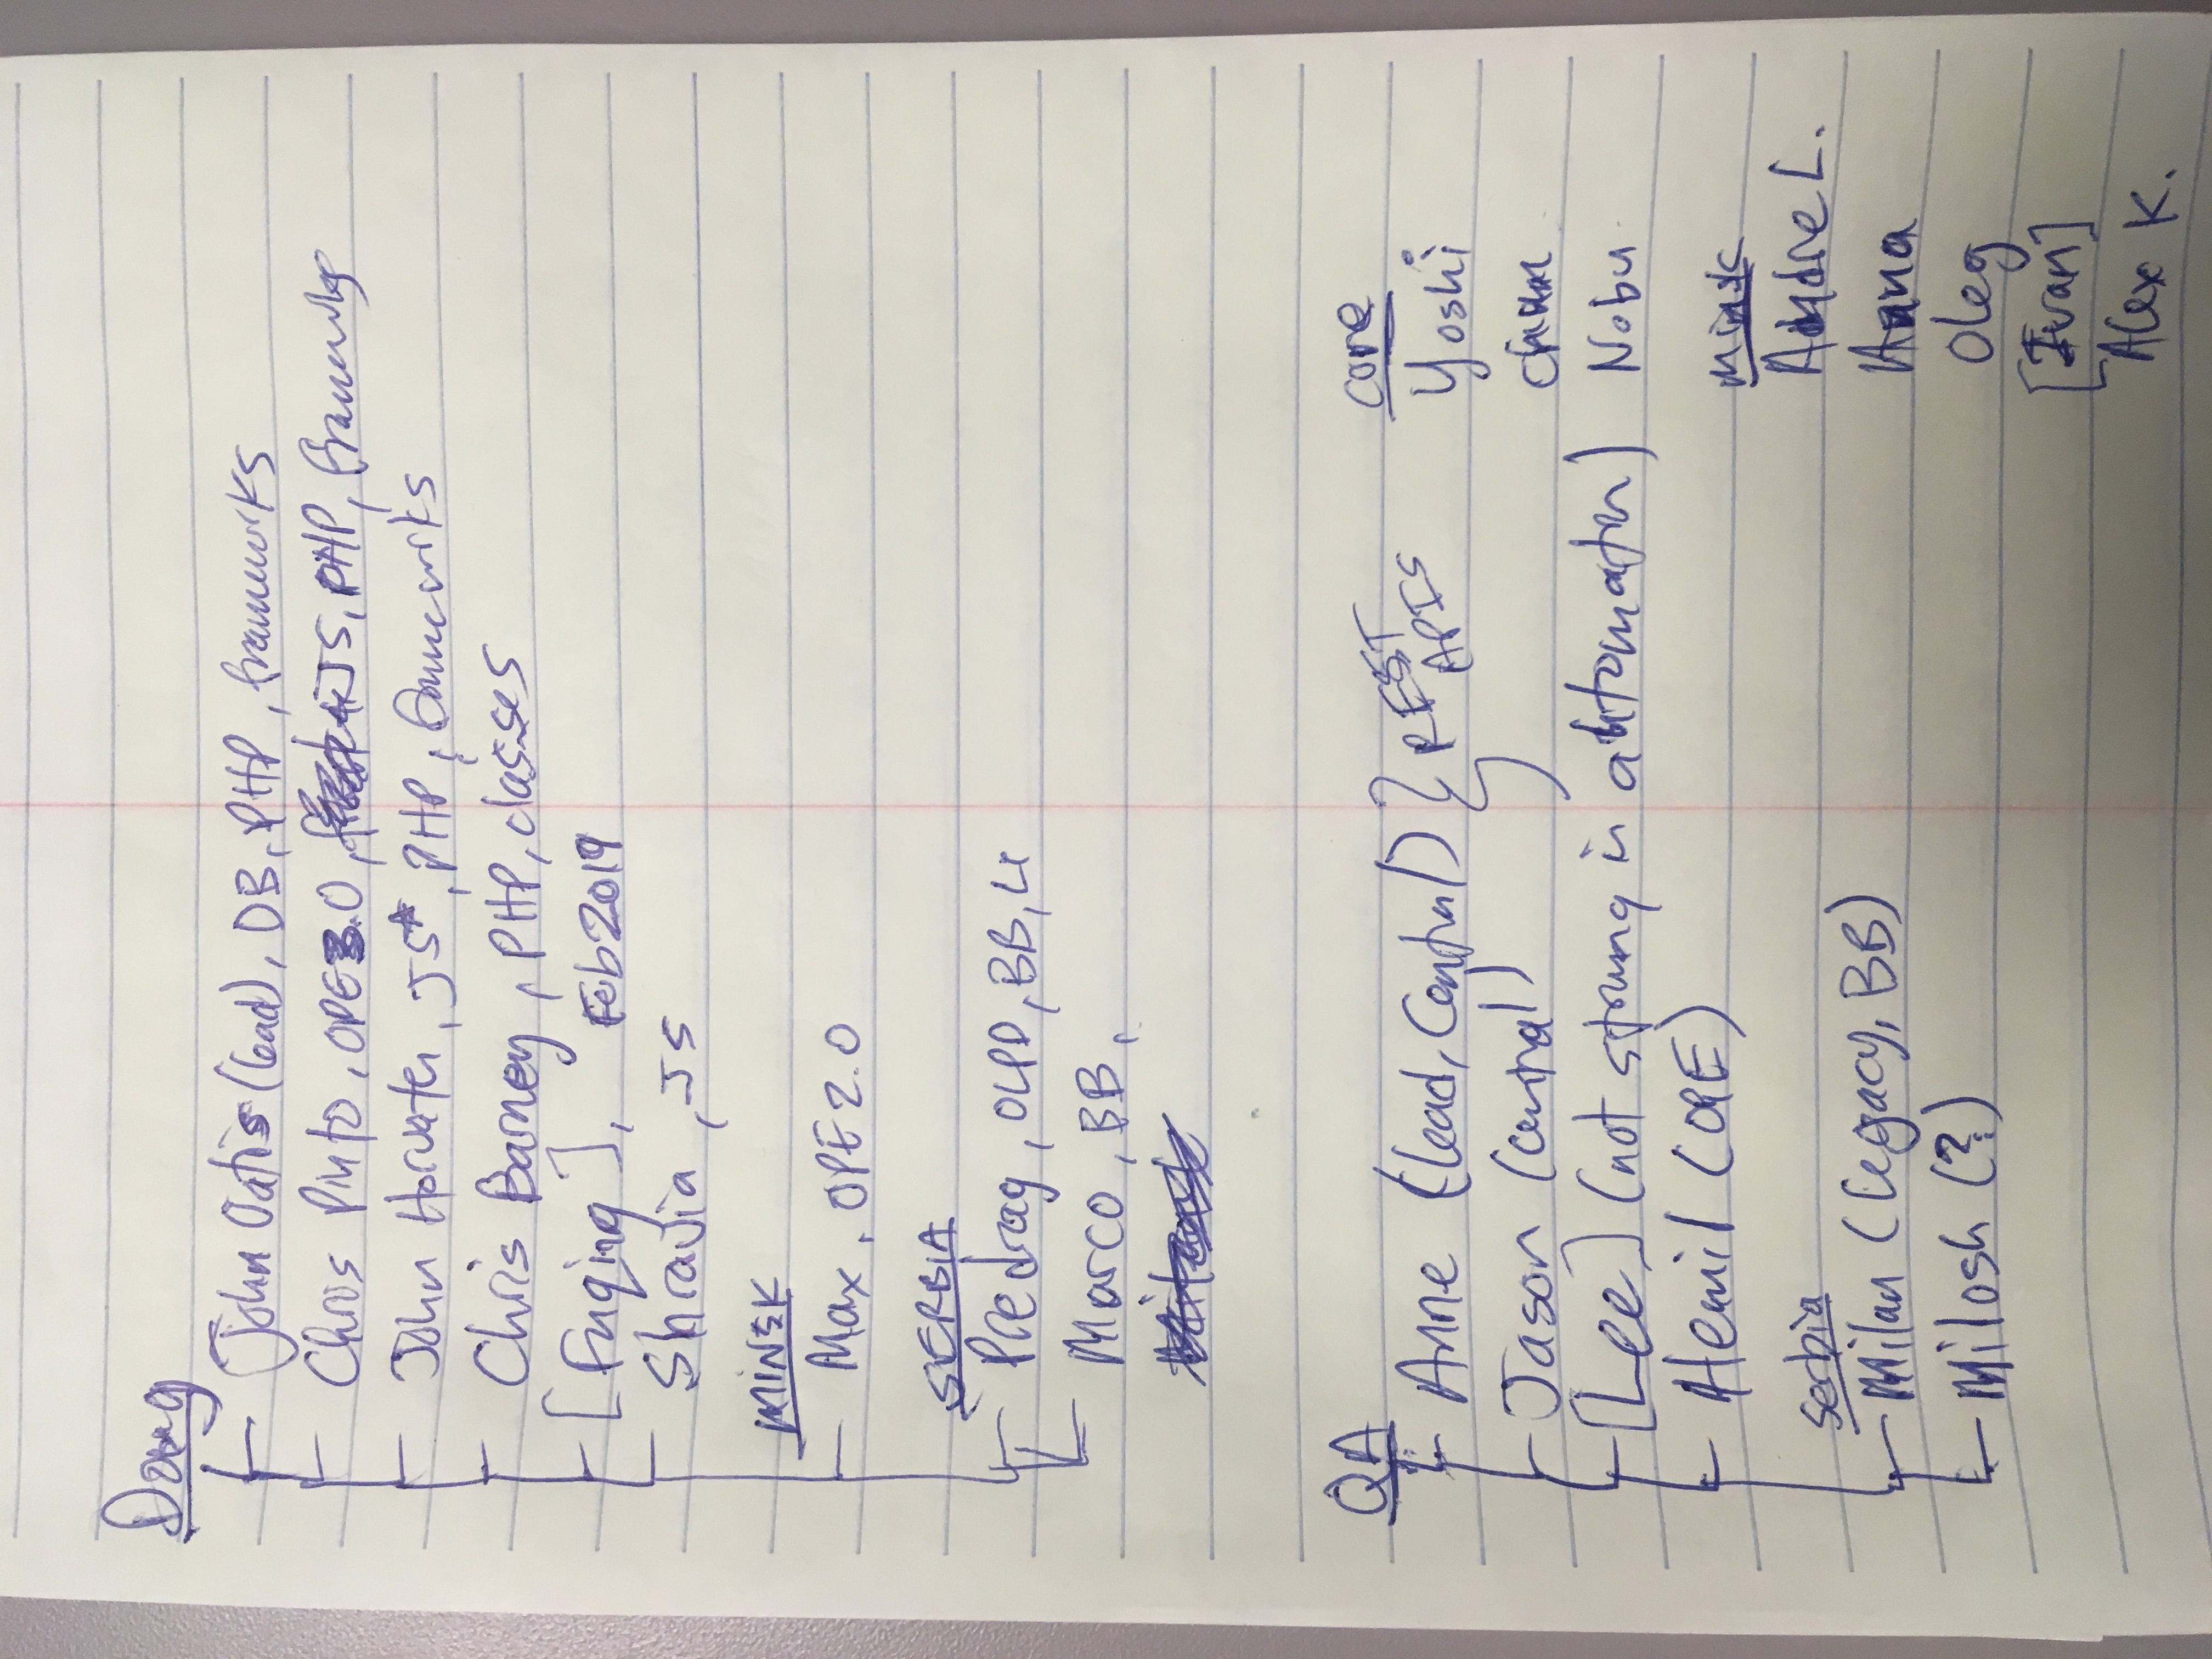 Doug
John Oatis (lead), DB, PHP, frameworks
Chris Pinto, OPE 3.0, JS, PHP, frameworks
John Horvater, JS*, PHP, frameworks
Chris Barney, PHP, classes
[Fuqing], Feb 2019
Shravia, JS
MINSK
Max, OPE 2.0
SERBIA
Predrag, OLPP, BB, L4
Marco, BB,
QA
Anne (lead, Central) } REST APIS
Jason (central)
[Lee] (not strong in automation)
Hemil (OPE)
Serbia
Milan (Legacy, BB)
Milosh (?)
Core
Yoshi
Nobu
Minsk
Andre L.
Anna
Oleg
[Ivan]
Alex K.